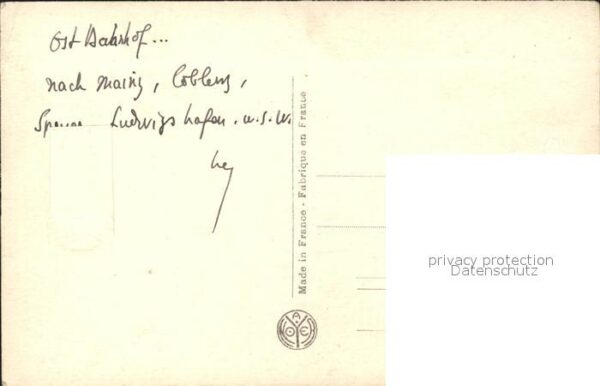 Ost Bahnhof...
nach Mainz, Coblenz,
Ludwigshafen. u.s.w.
Made in France - Fabriqué en France
privacy protection
Datenschutz